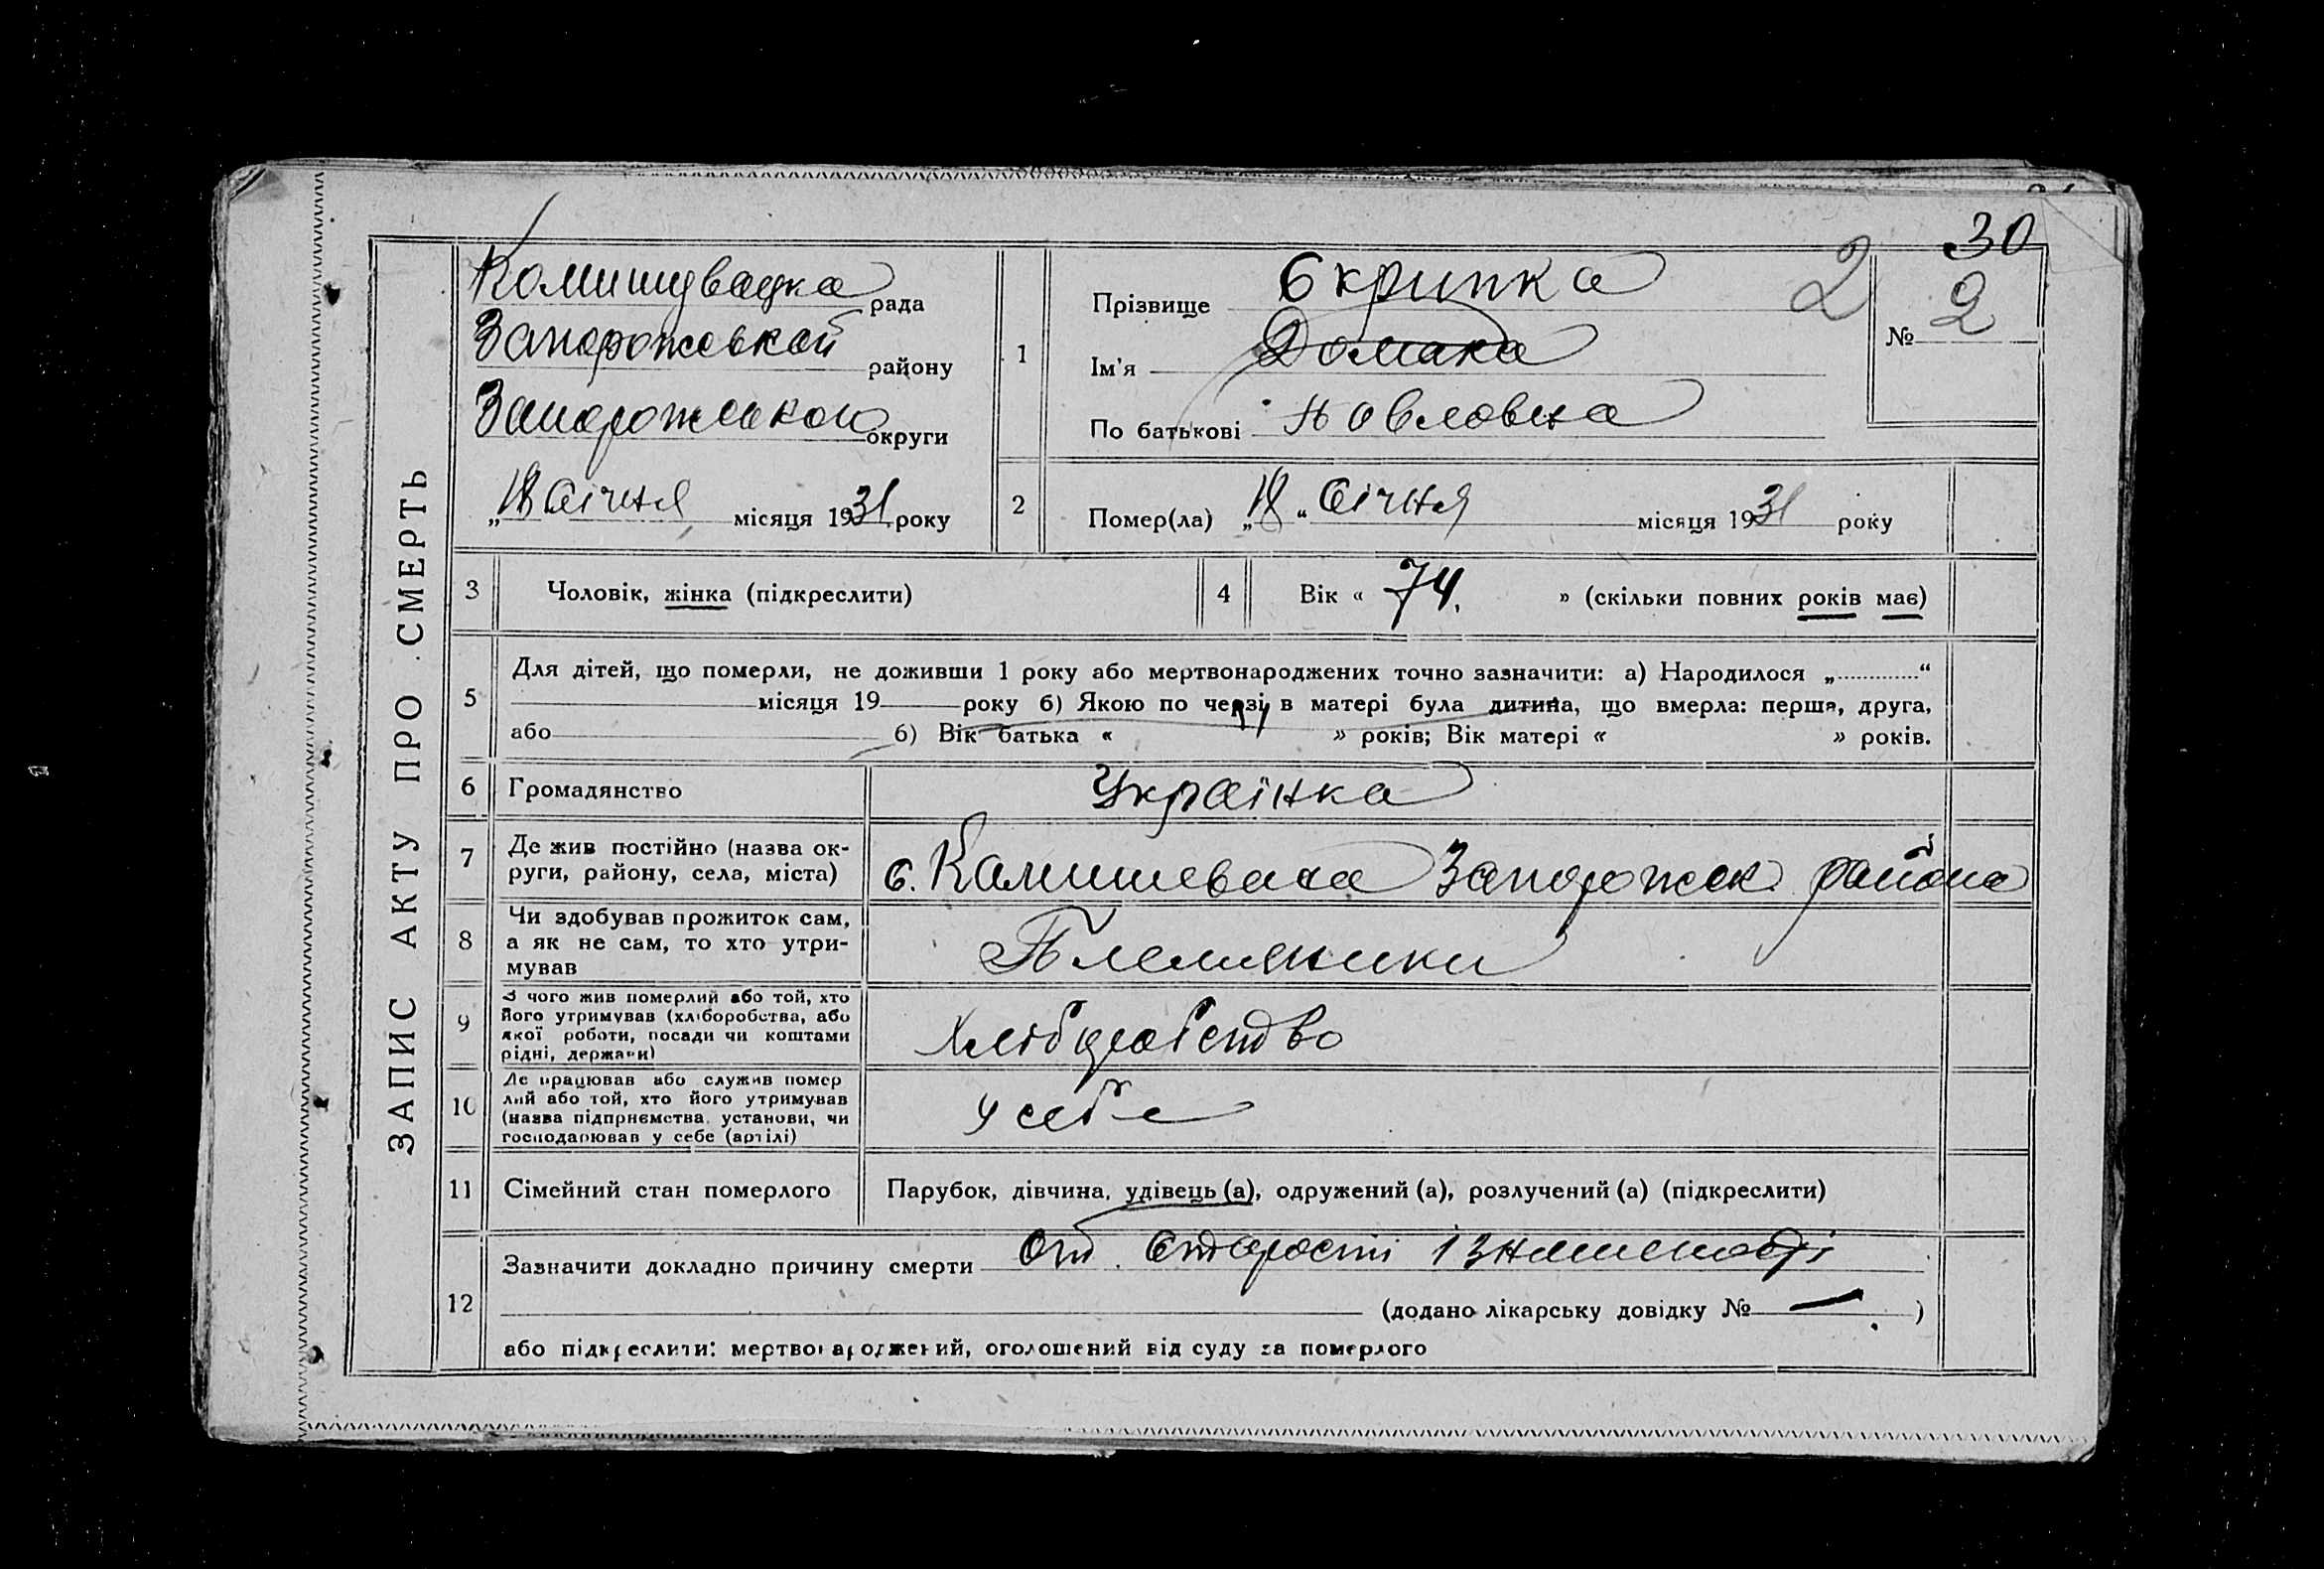 30
ЗАПИС АКТУ ПРО СМЕРТЬ
Комишувацка рада
Запорожской району
Запорожською округи
„18 Січня місяця 1931 року
1
Прізвище Скрипка 2
Ім'я Домаха
По батькові Повловна
№ 2
2
Помер(ла) „18“ Січня місяця 1931 року
3 Чоловік, жінка (підкреслити)
4 Вік « 74. » (скільки повних років має)
5 Для дітей, що померли, не доживши 1 року або мертвонароджених точно зазначити: а) Народилося „ “
місяця 19 року б) Якою по черзі в матері була дитина, що вмерла: перша, друга,
або б) Вік батька « » років; Вік матері « » років.
6 Громадянство Українка
7 Де жив постійно (назва ок-
руги, району, села, міста) с. Камишеваха Запорожск района
8 Чи здобував прожиток сам,
а як не сам, то хто утри-
мував Племяники
9 З чого жив померлий або той, хто
його утримував (хліборобства, або
якої роботи, посади чи коштами
рідні, держави) Хлібробство
10 Де працював або служив помер
лий або той, хто його утримував
(назва підприємства, установи, чи
господарював у себе (артілі) У себе
11 Сімейний стан померлого Парубок, дівчина, удівець (а), одружений (а), розлучений (а) (підкреслити)
12 Зазначити докладно причину смерти От Старості
(додано лікарську довідку № — )
або підкреслити: мертвонароджений, оголошений від суду за померлого